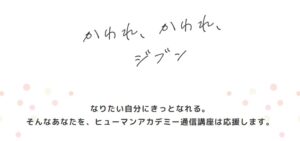 かわれ、かわれ、
ジブン
なりたい自分にきっとなれる。
そんなあなたを、ヒューマンアカデミー通信講座は応援します。